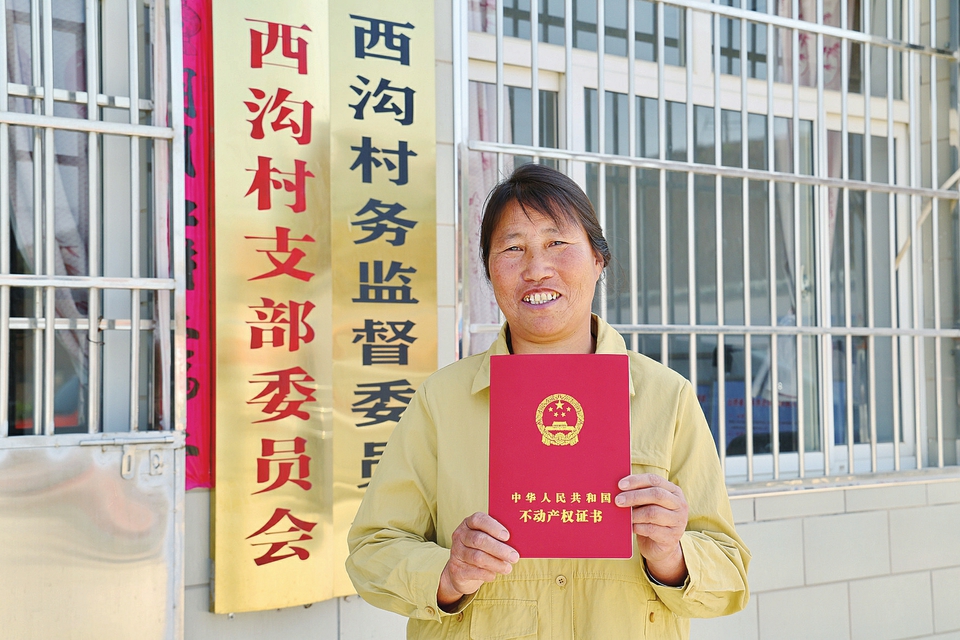 西沟村支部委员会
西沟村务监督委员
中华人民共和国
不动产权证书